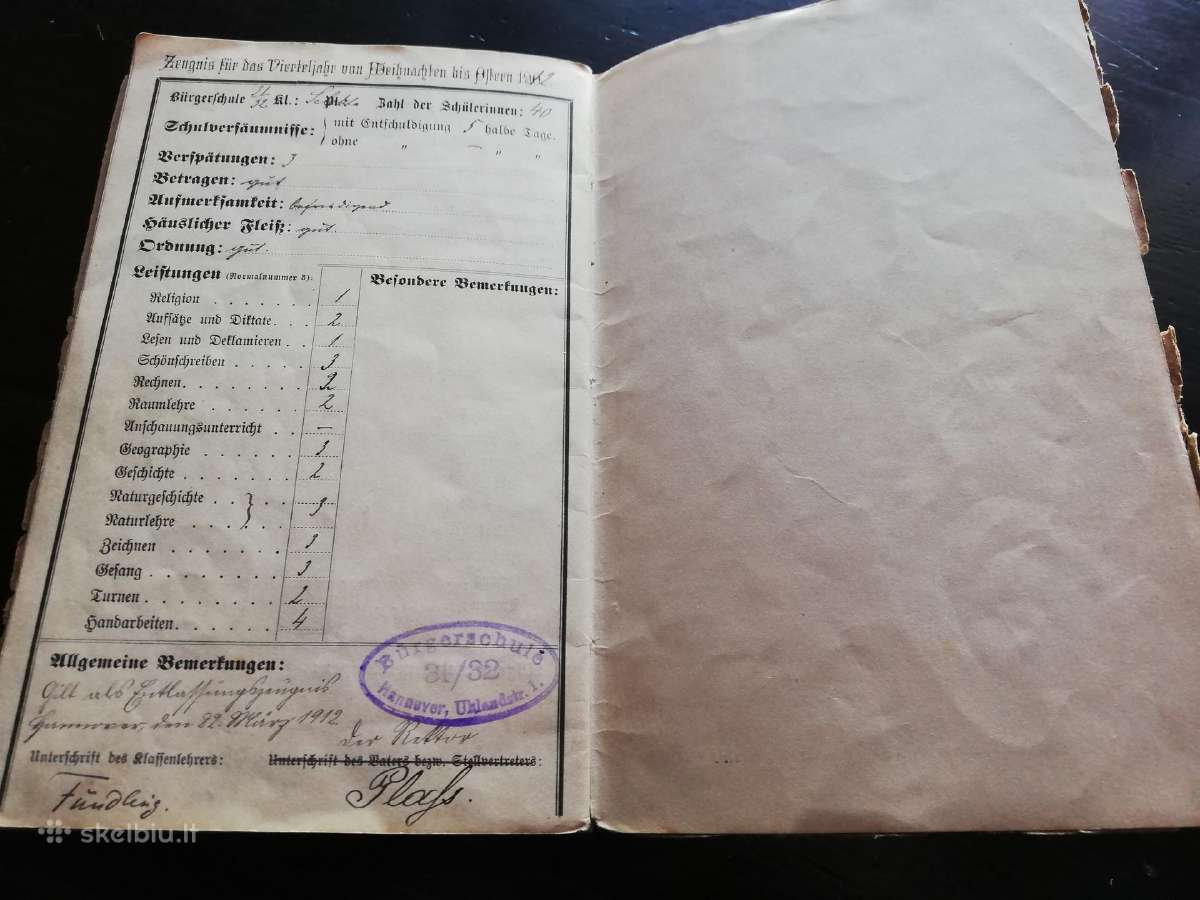 Zeugnis für das Vierteljahr von Weihnachten bis Ostern 1912
Bürgerschule 31/32 Kl.: Zahl der Schülerinnen: 40
Schulversäumnisse: mit Entschuldigung 5 halbe Tage.
ohne " — " "
Verspätungen: 3
Betragen: gut
Aufmerksamkeit: befriedigend
Häuslicher Fleiß: gut.
Ordnung: gut.
Leistungen (Normalnummer 3): Besondere Bemerkungen:
Religion 1
Aufsätze und Diktate 2
Lesen und Deklamieren 1
Schönschreiben 3
Rechnen 2
Raumlehre 2
Anschauungsunterricht —
Geographie 3
Geschichte 2
Naturgeschichte
Naturlehre 3
Zeichnen 3
Gesang 3
Turnen 2
Handarbeiten 4
Bürgerschule
31/32
Hannover, Uhlandstr. 1.
Allgemeine Bemerkungen:
Gilt als Entlassungszeugnis
Hannover, den 22. März 1912
Der Rektor
Unterschrift des Klassenlehrers: Unterschrift des Vaters bezw. Stellvertreters:
Fündling. Plass.
skelbiu.lt